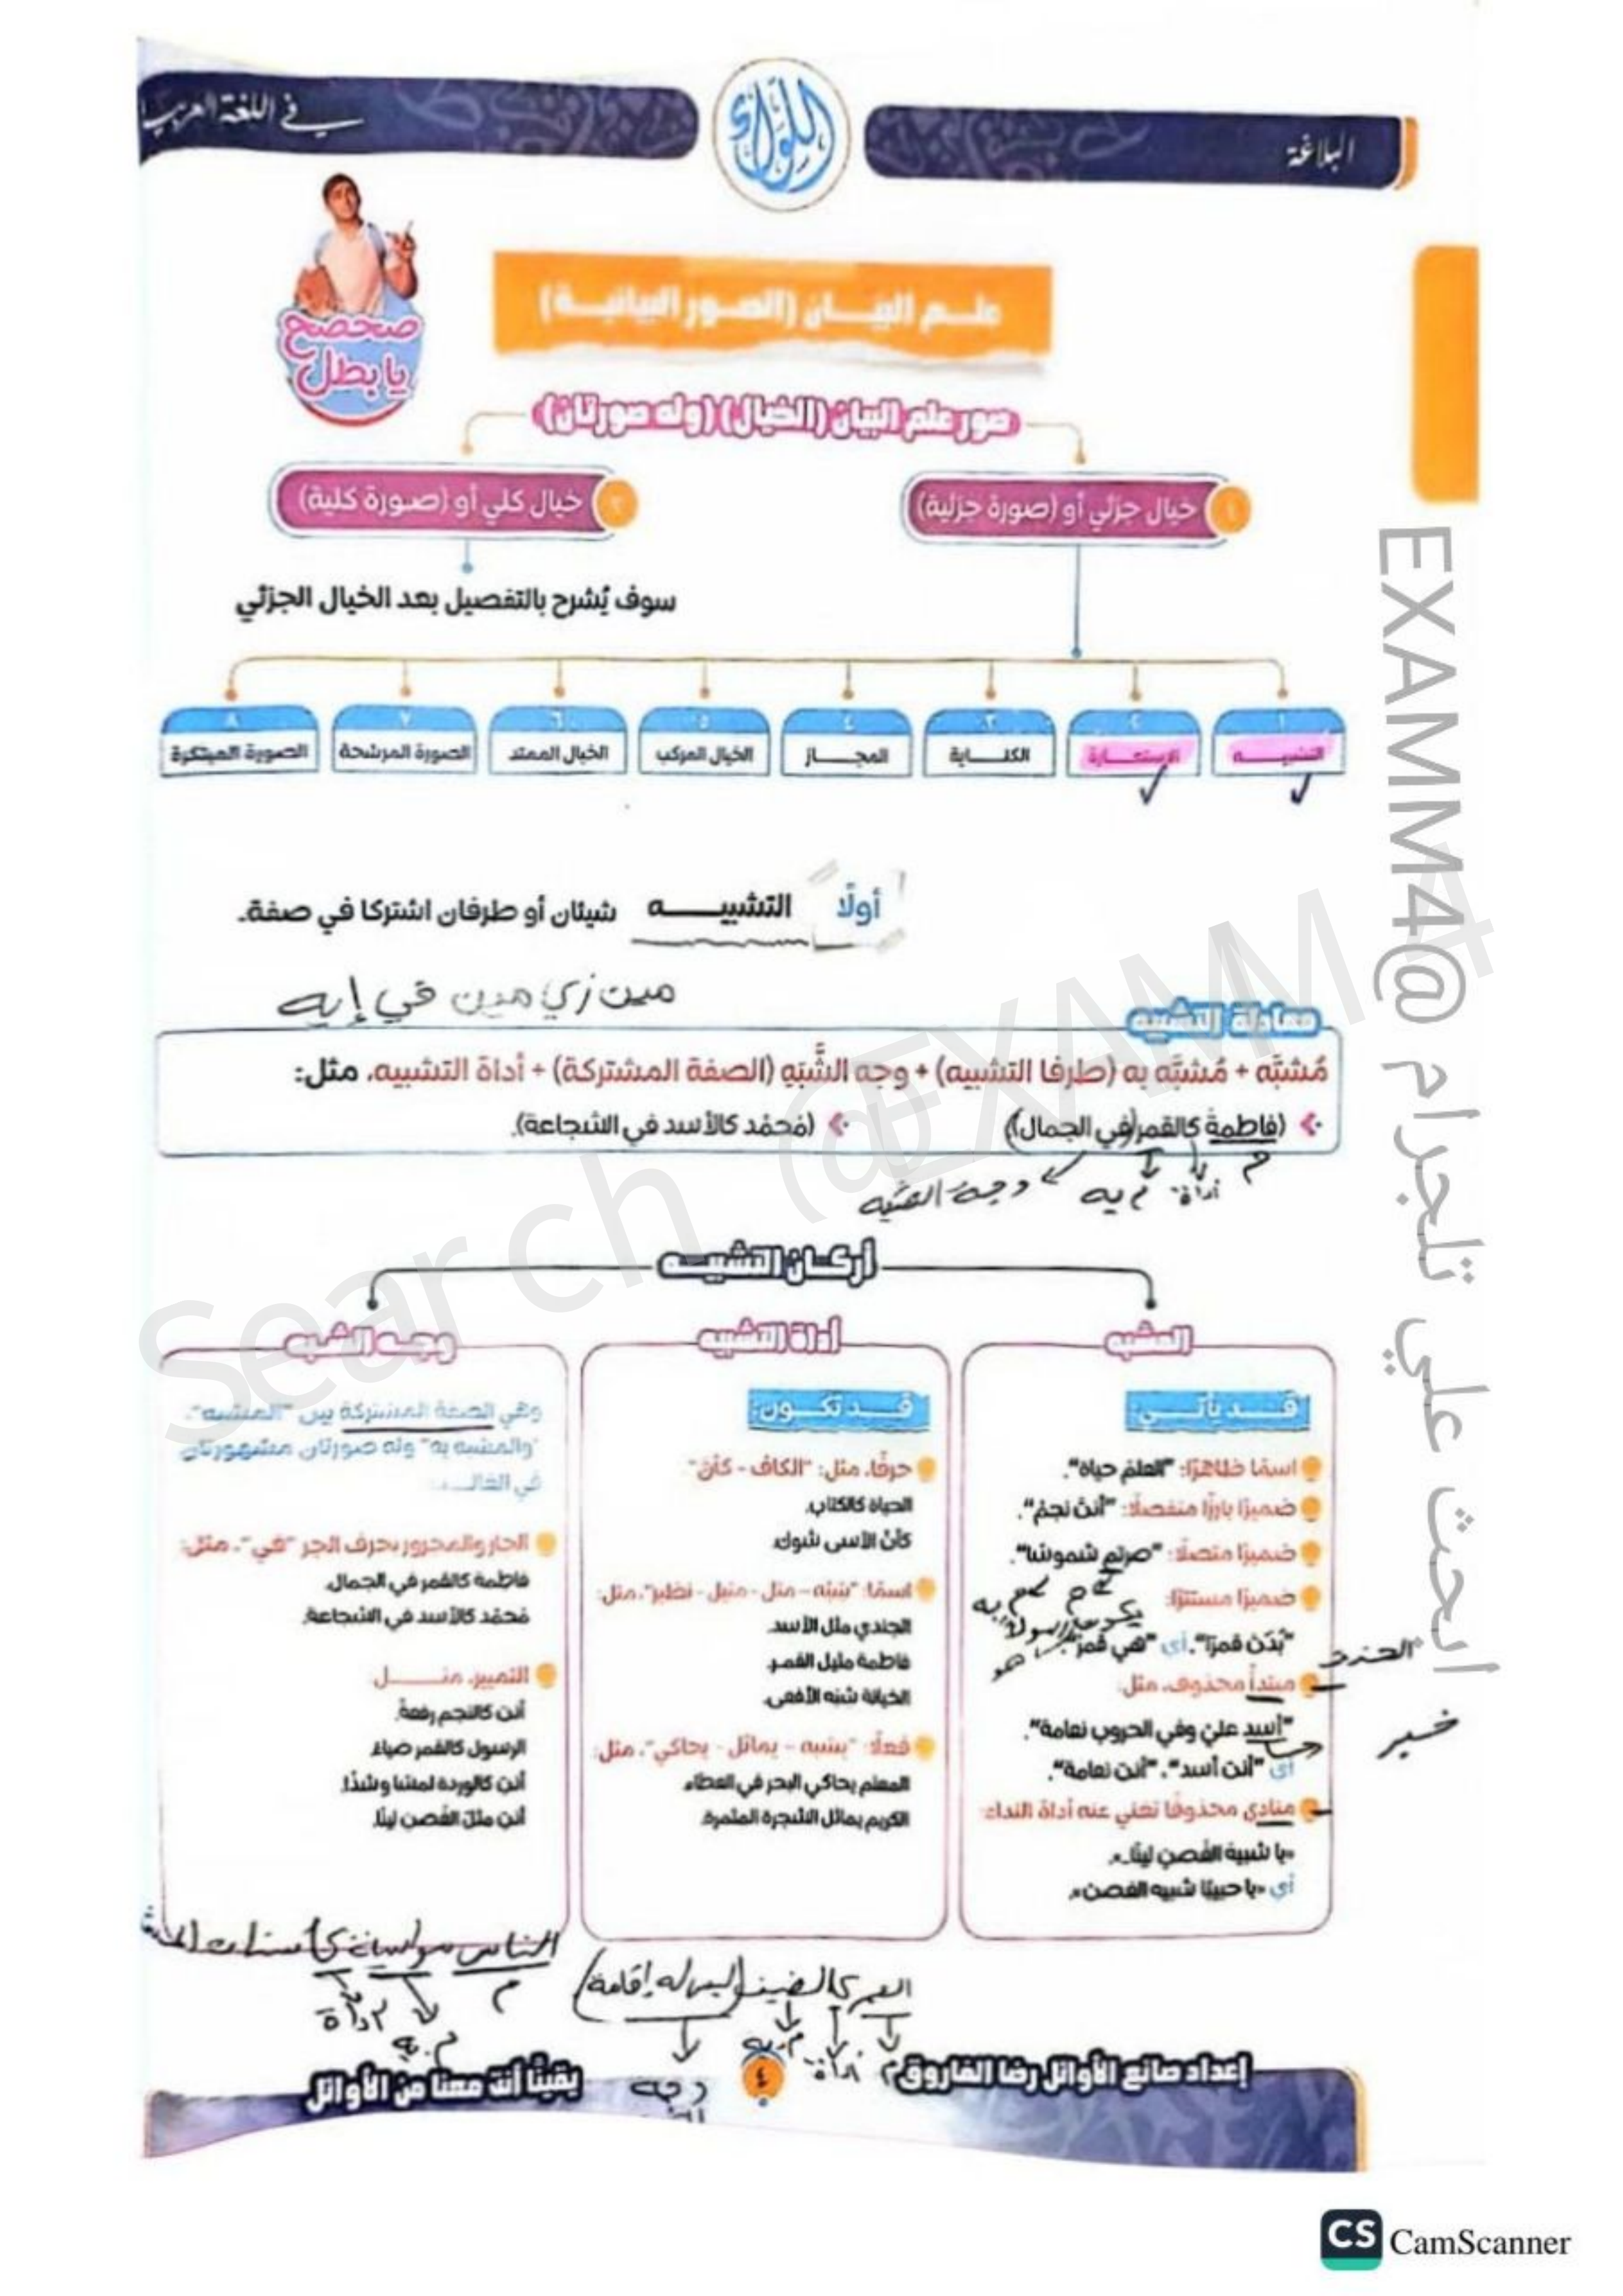 البلاغة
اللواء
في اللغة العربية
صحصح
يا بطل
علم البيان (الصور البيانية)
صور علم البيان (الخيال) (وله صورتان)
١ خيال جزئي أو (صورة جزئية)
٢ خيال كلي أو (صورة كلية)
سوف يُشرح بالتفصيل بعد الخيال الجزئي
١ التشبيه
٢ الاستعارة
٣ الكناية
٤ المجاز
٥ الخيال المركب
٦ الخيال الممتد
٧ الصورة المرشحة
٨ الصورة المبتكرة
أولًا التشبيه شيئان أو طرفان اشتركا في صفة.
مين زي مين في إيه
معادلة التشبيه
مُشبَّه + مُشبَّه به (طرفا التشبيه) + وجه الشَّبَهِ (الصفة المشتركة) + أداة التشبيه، مثل:
(فاطمةُ كالقمر (في الجمال)) (مُحمَّد كالأسد في الشجاعة).
م أداة م به وجه الشبه
أركان التشبيه
المشبه
قد يأتي:
اسمًا ظاهرًا: "العلم حياة".
ضميرًا بارزًا منفصلًا: "أنت نجم".
ضميرًا متصلًا: "صرتم شموسًا".
ضميرًا مستترًا:
"بُدَت قمرًا"، أي "هي قمر".
هو
مبتدأ محذوف، مثل:
خبر
"أسد عليّ وفي الحروب نعامة".
أي "أنت أسد"، "أنت نعامة".
منادى محذوفًا تغني عنه أداة النداء
«يا شبيهَ الغُصنِ لينًا..».
أي «يا حبيبًا شبيه الغصن».
أداة التشبيه
قد تكون:
حرفًا، مثل: "الكاف - كأنّ"
الحياة كالكتاب.
كأنّ الأسى شوك.
اسمًا: "شبه - مثل - مثيل - نظير"، مثل:
الجندي مثل الأسد.
فاطمة مثيل القمر.
الخيانة شبه الأفعى.
فعلًا: "يشبه - يماثل - يحاكي"، مثل:
المعلم يحاكي البحر في العطاء.
الكريم يماثل الشجرة المثمرة.
وجه الشبه
وهي الصفة المشتركة بين "المشبه"،
"والمشبه به" وله صورتان مشهورتان
في الغالب:
الجار والمجرور بحرف الجر "في"، مثل:
فاطمة كالقمر في الجمال.
مُحمّد كالأسد في الشجاعة.
التمييز، مثل
أنت كالنجم رفعةً.
الرسول كالقمر ضياءً.
أنت كالوردة لمسًا وشذًا.
أنت مثل الغُصن لينًا.
الناس سواسية كأسنان المشط
م م به أداة
العمر كالضيف (ليس له إقامة)
م أداة م به وجه
إعداد صانع الأوائل رضا الفاروق
٤
يقينًا أنت معنا من الأوائل
Search @EXAMM4
ابحث علي تلجرام @EXAMM4
CS CamScanner